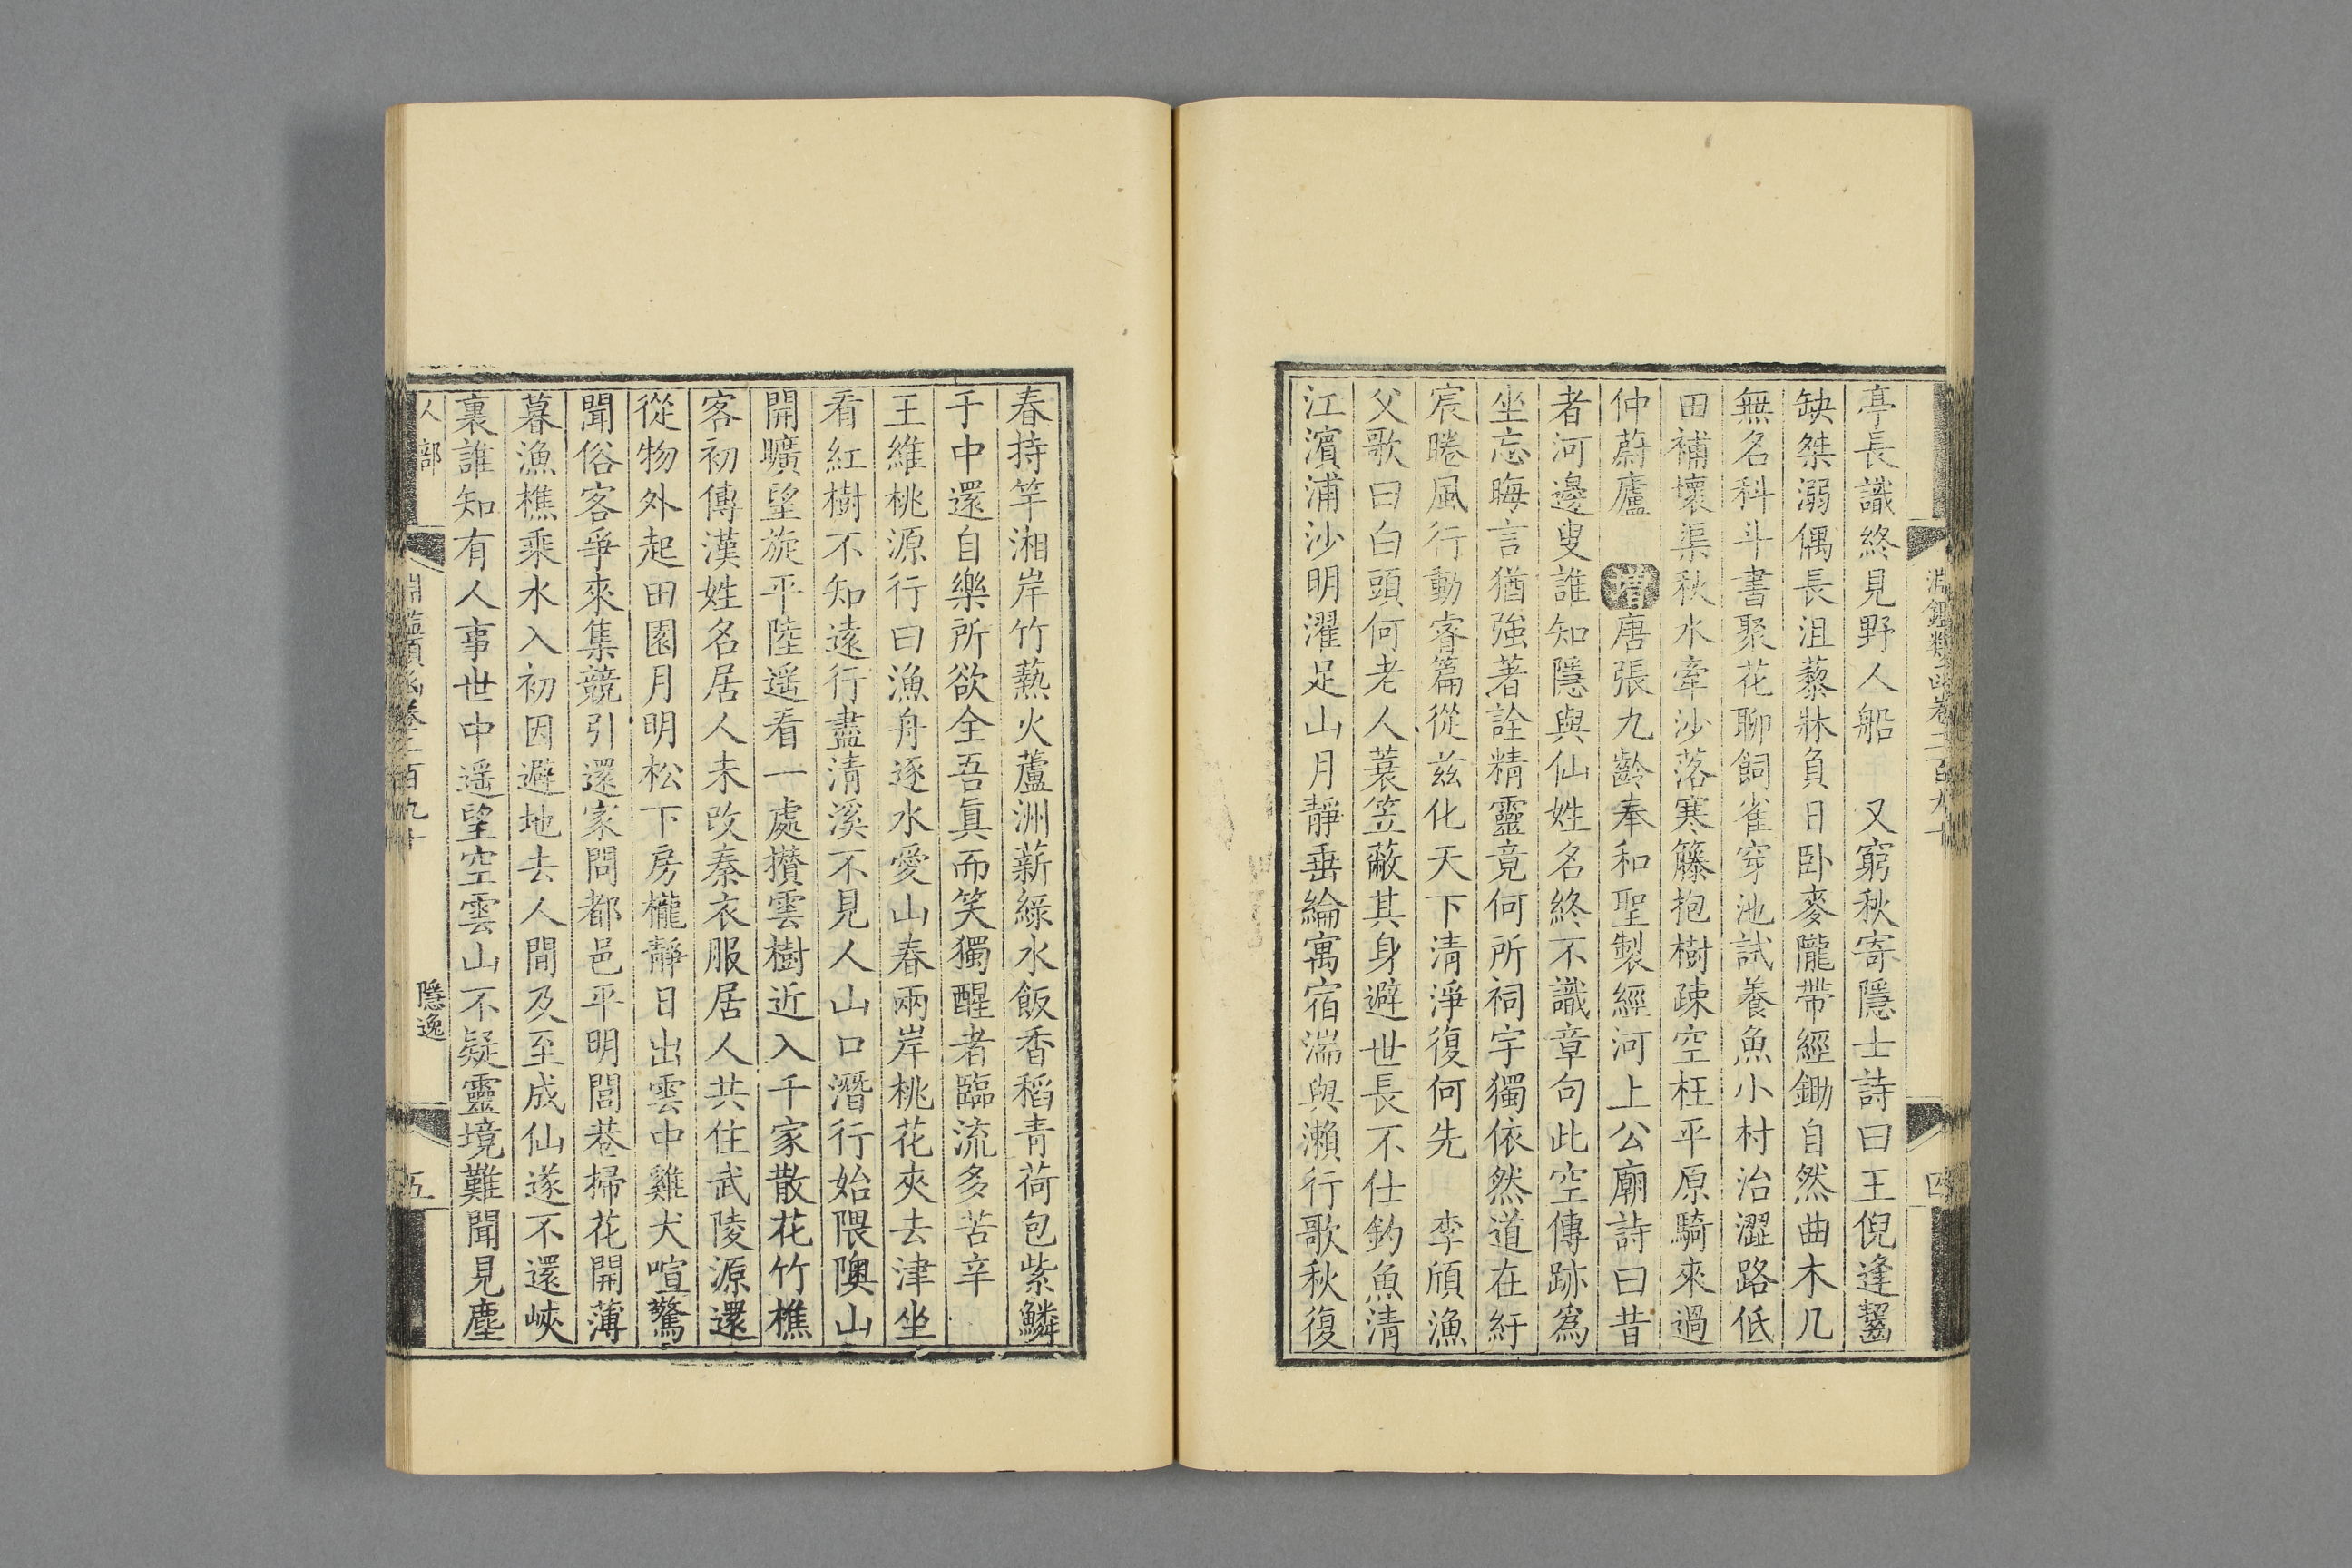 淵鑑類函卷二百九十
四
亭長識終見野人船 又窮秋寄隱士詩曰王倪逢齧
缺桀溺偶長沮藜牀負日卧麥隴帶經鋤自然曲木几
無名科斗書聚花聊飼雀穿池試養魚小村治澀路低
田補壞渠秋水牽沙落寒籐抱樹疎空枉平原騎來過
仲蔚廬 增唐張九齡奉和聖製經河上公廟詩曰昔
者河邊叟誰知隱與仙姓名終不識章句此空傳跡爲
坐忘晦言猶強著詮精靈竟何所祠宇獨依然道在紆
宸睠風行動睿篇從茲化天下清淨復何先 李頎漁
父歌曰白頭何老人蓑笠蔽其身避世長不仕釣魚清
江濱浦沙明濯足山月靜垂綸寓宿湍與瀨行歌秋復
春持竿湘岸竹爇火蘆洲薪綠水飯香稻青荷包紫鱗
于中還自樂所欲全吾眞而笑獨醒者臨流多苦辛
王維桃源行曰漁舟逐水愛山春兩岸桃花夾去津坐
看紅樹不知遠行盡清溪不見人山口潛行始隈隩山
開曠望旋平陸遥看一處攅雲樹近入千家散花竹樵
客初傳漢姓名居人未改秦衣服居人共住武陵源還
從物外起田園月明松下房櫳靜日出雲中雞犬喧驚
聞俗客爭來集競引還家問都邑平明閭巷掃花開薄
暮漁樵乘水入初因避地去人間及至成仙遂不還峽
裏誰知有人事世中遥望空雲山不疑靈境難聞見塵
人部
淵鑑類函卷二百九十
隱逸
五